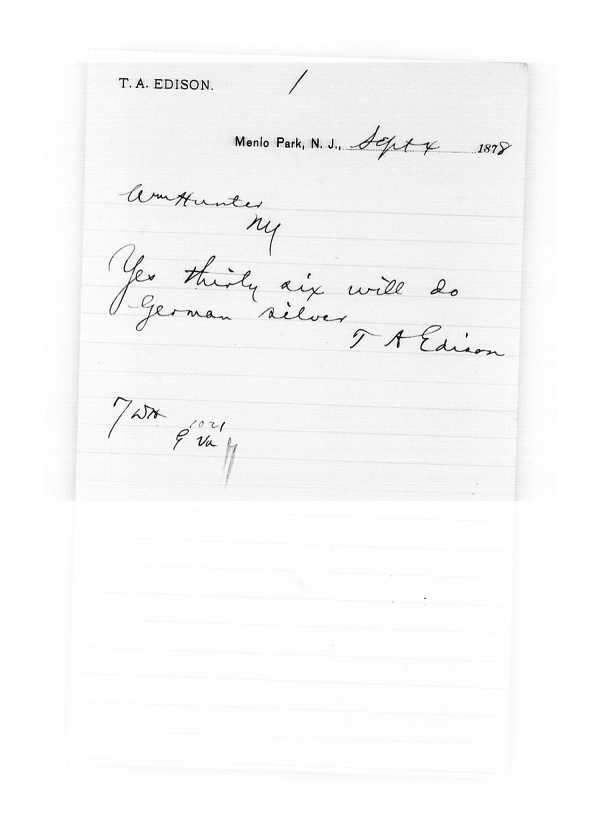 T. A. EDISON.
/
Menlo Park, N. J., Sept 4 1878
Wm Hunter
NY
Yes thirty six will do
German silver
T A Edison
7 WH
1021
9 Va